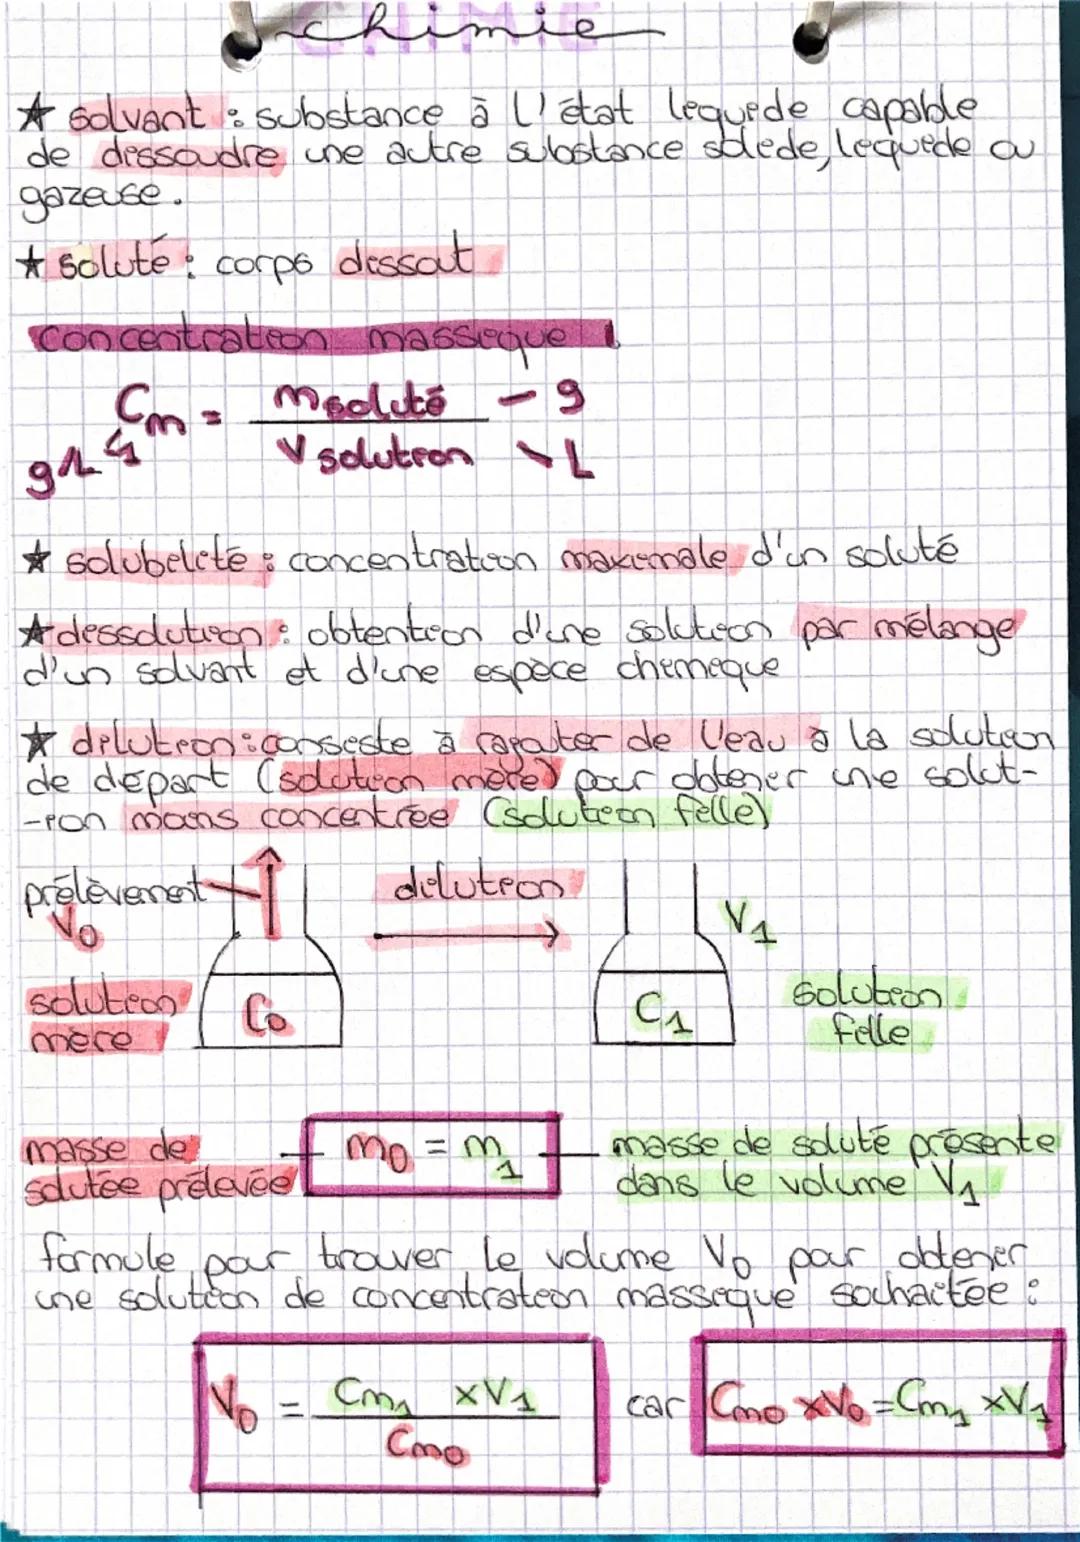 chimie
★ solvant : substance à l'état liquide capable
de dissoudre une autre substance solide, liquide ou
gazeuse.
★ soluté : corps dissout
concentration massique
Cm = msoluté / Vsolution - g
g/L L
★ solubilité : concentration maximale d'un soluté
★ dissolution : obtention d'une solution par mélange
d'un solvant et d'une espèce chimique
★ dilution : consiste à rajouter de l'eau à la solution
de départ (solution mère) pour obtenir une solut-
-ion moins concentrée (solution fille)
prélèvement dilution
V0 V1
solution mère C0 C1 solution fille
masse de m0 = m1 masse de soluté présente
solutée prélevée dans le volume V1
formule pour trouver le volume V0 pour obtenir
une solution de concentration massique souhaitée :
V0 = Cm1 x V1 / Cm0 car Cm0 x V0 = Cm1 x V1